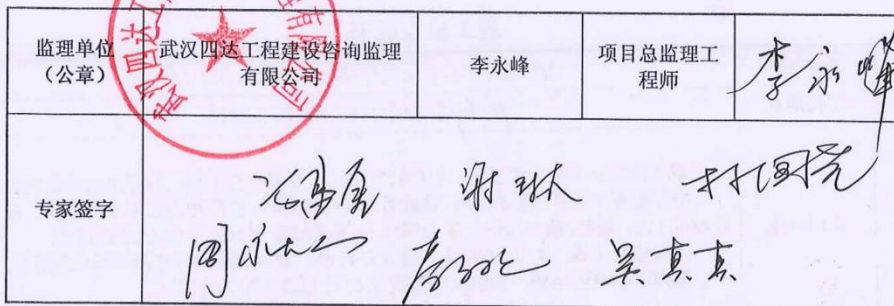 监理单位
（公章）
武汉四达工程建设咨询监理
有限公司
李永峰
项目总监理工
程师
李永峰
专家签字
谢琳
吴真真